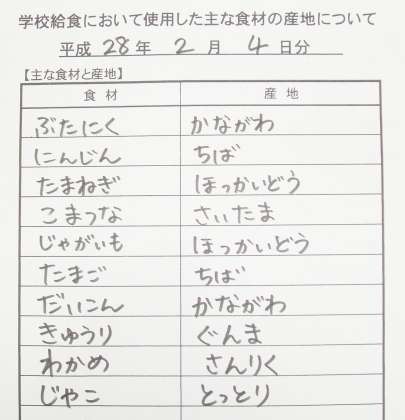 学校給食において使用した主な食材の産地について
平成 28 年 2 月 4 日分
【主な食材と産地】
食 材 産 地
ぶたにく かながわ
にんじん ちば
たまねぎ ほっかいどう
こまつな さいたま
じゃがいも ほっかいどう
たまご ちば
だいこん かながわ
きゅうり ぐんま
わかめ さんりく
じゃこ とっとり